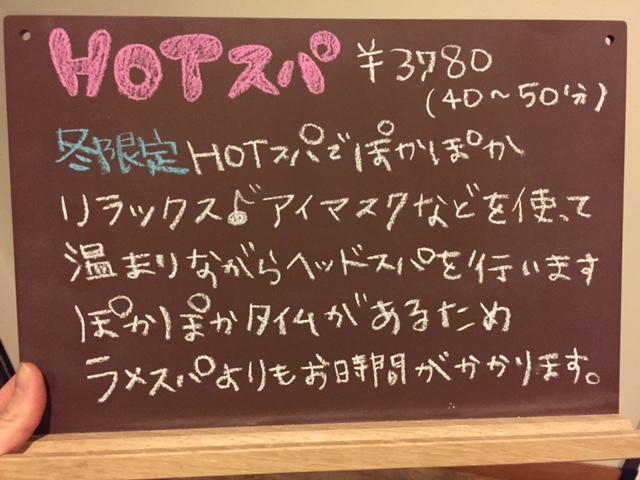 HOTスパ ¥3780
(40～50分)
冬限定HOTスパでぽかぽか
リラックス♪アイマスクなどを使って
温まりながらヘッドスパを行います
ぽかぽかタイムがあるため
ラメスパよりもお時間がかかります。